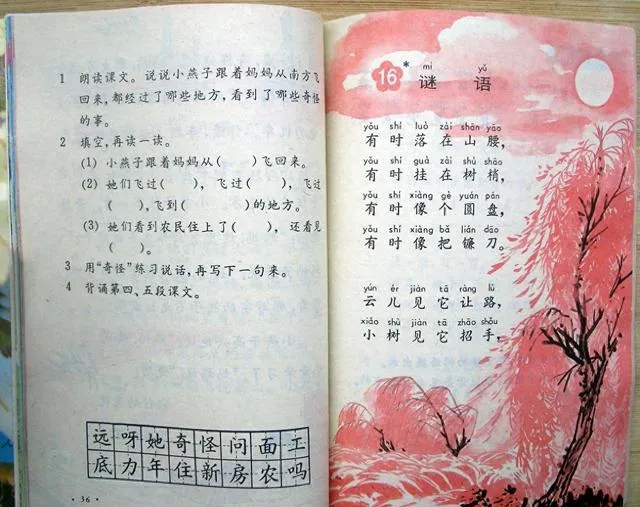 1 朗读课文。说说小燕子跟着妈妈从南方飞
回来,都经过了哪些地方,看到了哪些奇怪
的事。
2 填空,再读一读。
(1) 小燕子跟着妈妈从( )飞回来。
(2) 她们飞过( ), 飞过( ), 飞过
( ),飞到( )的地方。
(3) 她们看到农民住上了( ), 还看见
( )。
3 用“奇怪”练习说话,再写下一句来。
4 背诵第四、五段课文。
远呀她奇怪问面工
底力年住新房农吗
· 36 ·
mí yǔ
16* 谜语
yǒu shí luò zài shān yāo
有时落在山腰,
yǒu shí guà zài shù shāo
有时挂在树梢,
yǒu shí xiàng gè yuán pán
有时像个圆盘,
yǒu shí xiàng bǎ lián dāo
有时像把镰刀。
yún ér jiàn tā ràng lù
云儿见它让路,
xiǎo shù jiàn tā zhāo shǒu
小树见它招手,